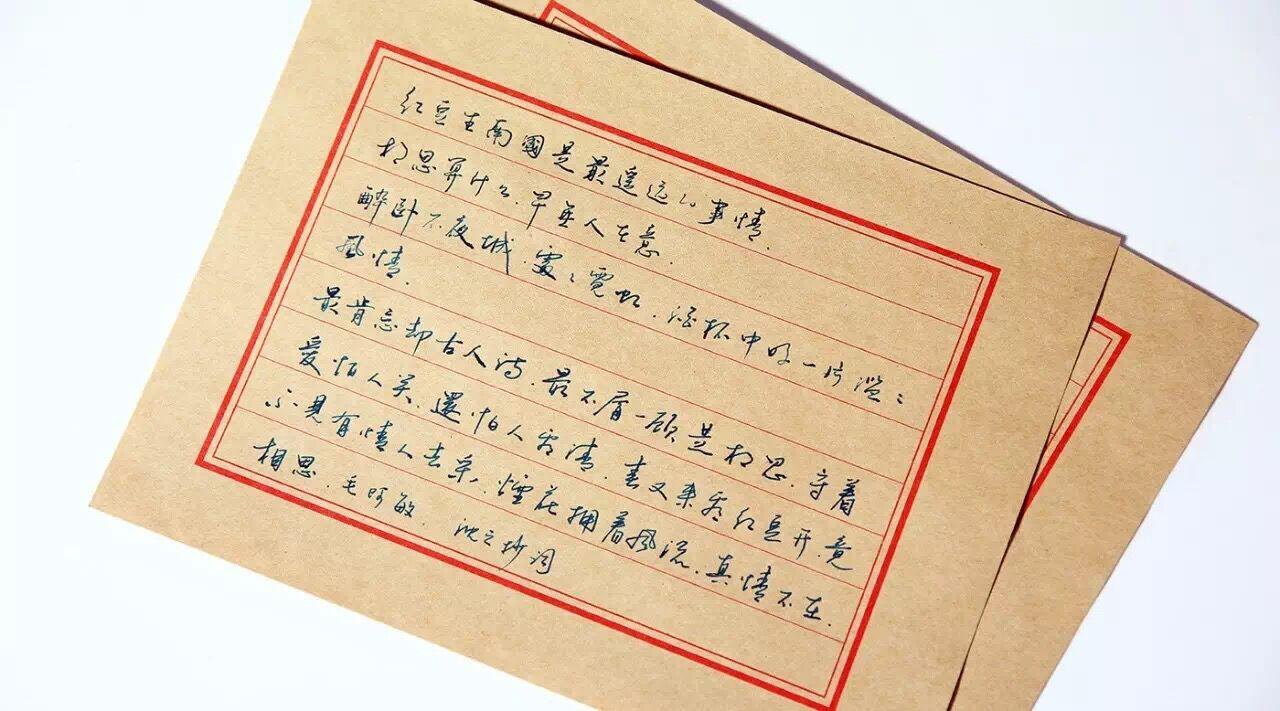 红豆生南國是最遥远的事情.
相思算什么.早無人在意.
醉卧不夜城.處々霓虹.酒杯中好一片滥々
風情.
最肯忘却古人诗.最不屑一顾是相思.守着
爱怕人笑.還怕人看清.春又来看红豆开竟
不見有情人去采.煙花拥着風流.真情不在.
相思.毛阿敏. 抄词